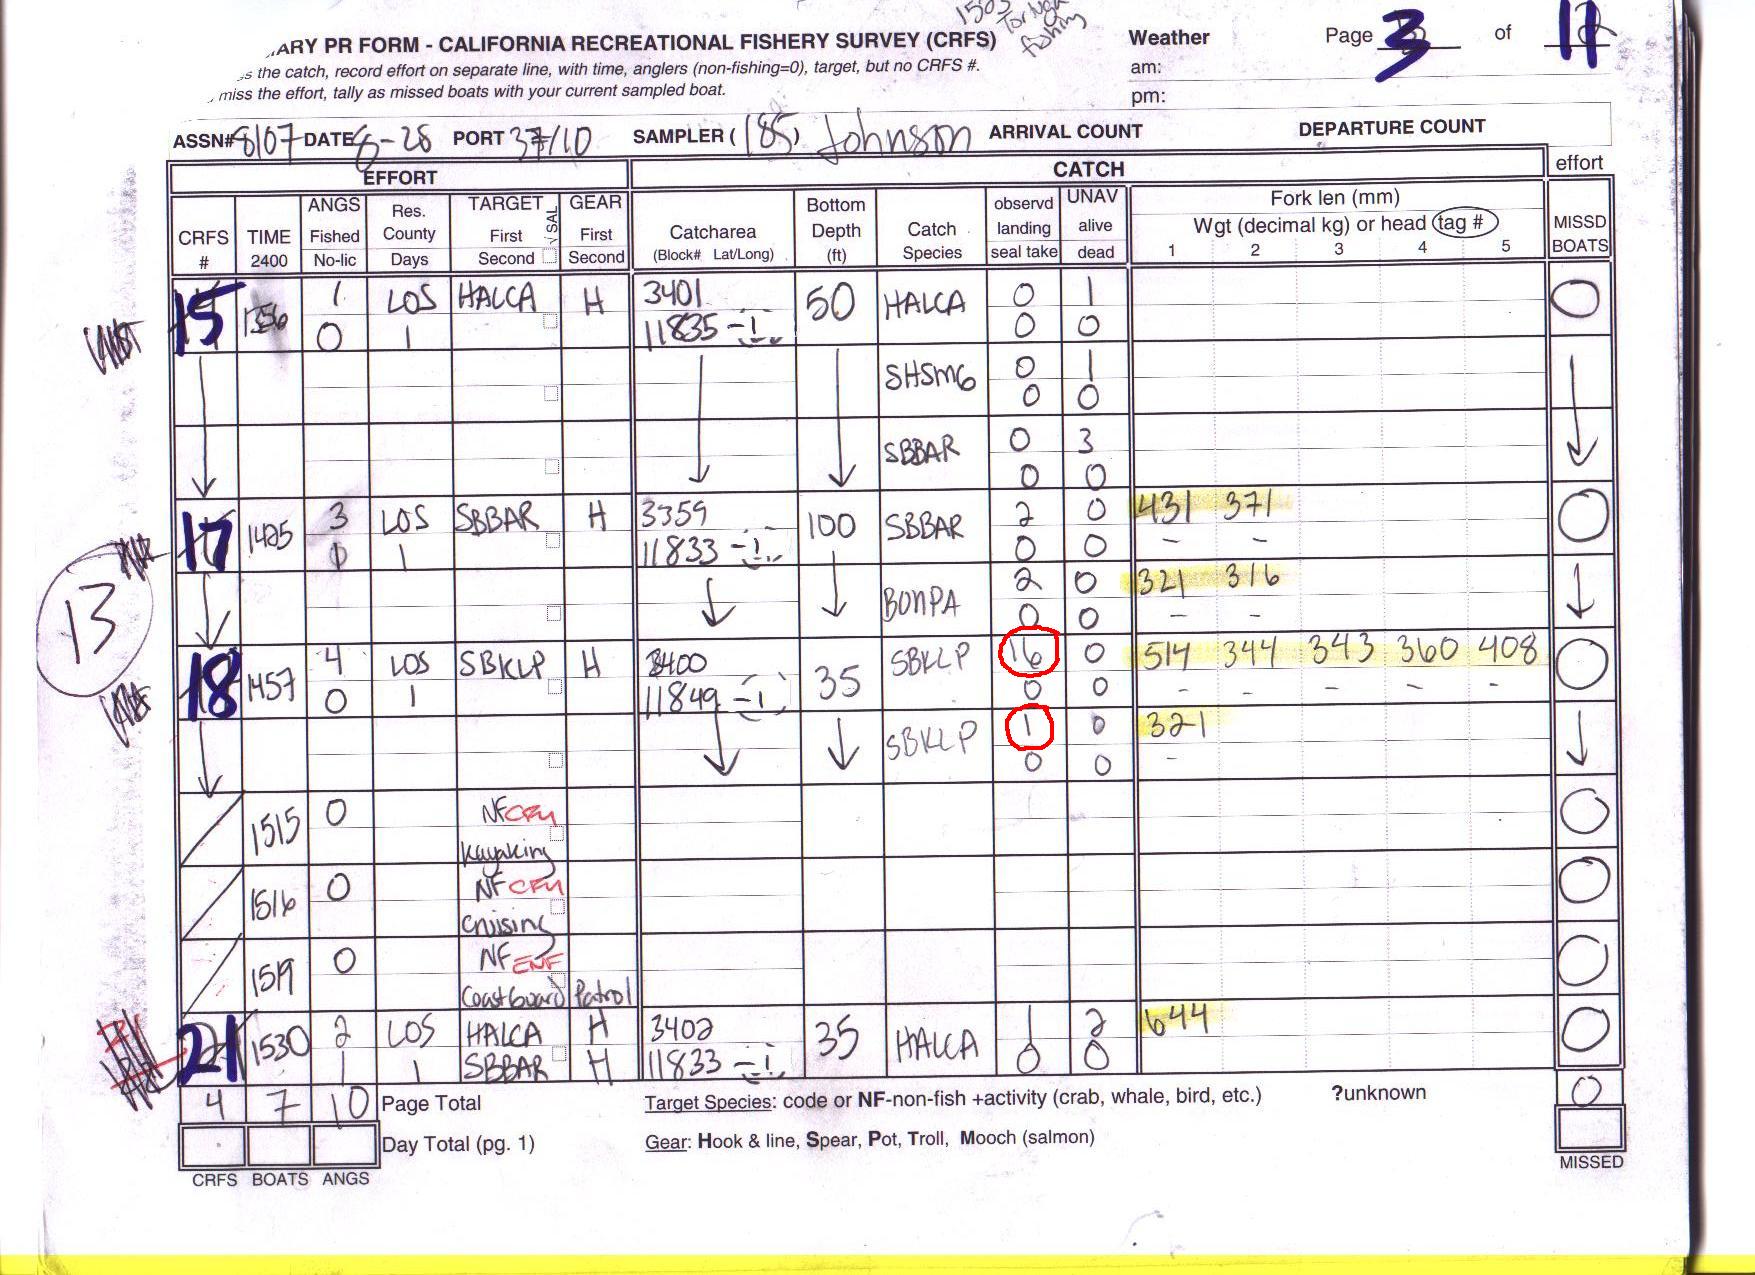 1503
fishing
ARY PR FORM - CALIFORNIA RECREATIONAL FISHERY SURVEY (CRFS)
s the catch, record effort on separate line, with time, anglers (non-fishing=0), target, but no CRFS #.
miss the effort, tally as missed boats with your current sampled boat.
Weather
am:
pm:
Page 3 of 11
ASSN# 8107 DATE 8-28 PORT 37/10 SAMPLER (185) Johnson ARRIVAL COUNT DEPARTURE COUNT
EFFORT CATCH effort
CRFS # TIME 2400 ANGS Fished No-lic Res. County Days TARGET First Second √ SAL GEAR First Second Catcharea (Block# Lat/Long) Bottom Depth (ft) Catch Species observd landing seal take UNAV alive dead Fork len (mm) Wgt (decimal kg) or head tag # 1 2 3 4 5 MISSD BOATS
15 1356 1 LOS HALCA H 3401 50 HALCA 0 1 0
0 1 11835 - 1 0 0
SHSMG 0 1
0 0
SBBAR 0 3
0 0
17 1425 3 LOS SBBAR H 3359 100 SBBAR 2 0 431 371 0
1 11833 - 1 0 0 - -
BONPA 2 0 321 316
0 0 - -
13
18 1457 4 LOS SBKLP H 3400 35 SBKLP 16 0 514 344 343 360 408 0
0 1 11849 - 1 0 0 - - - - -
SBKLP 1 0 321
0 0 -
1515 0 NF CRU 0
Kayaking
1516 0 NF CRU 0
Cruising
1519 0 NF ENF 0
Coastguard Patrol
21 1530 2 LOS HALCA H 3402 35 HALCA 1 2 644 0
1 1 SBBAR H 11833 - 1 0 0
4 7 10 Page Total Target Species: code or NF-non-fish +activity (crab, whale, bird, etc.) ?unknown 0
Day Total (pg. 1) Gear: Hook & line, Spear, Pot, Troll, Mooch (salmon)
CRFS BOATS ANGS MISSED